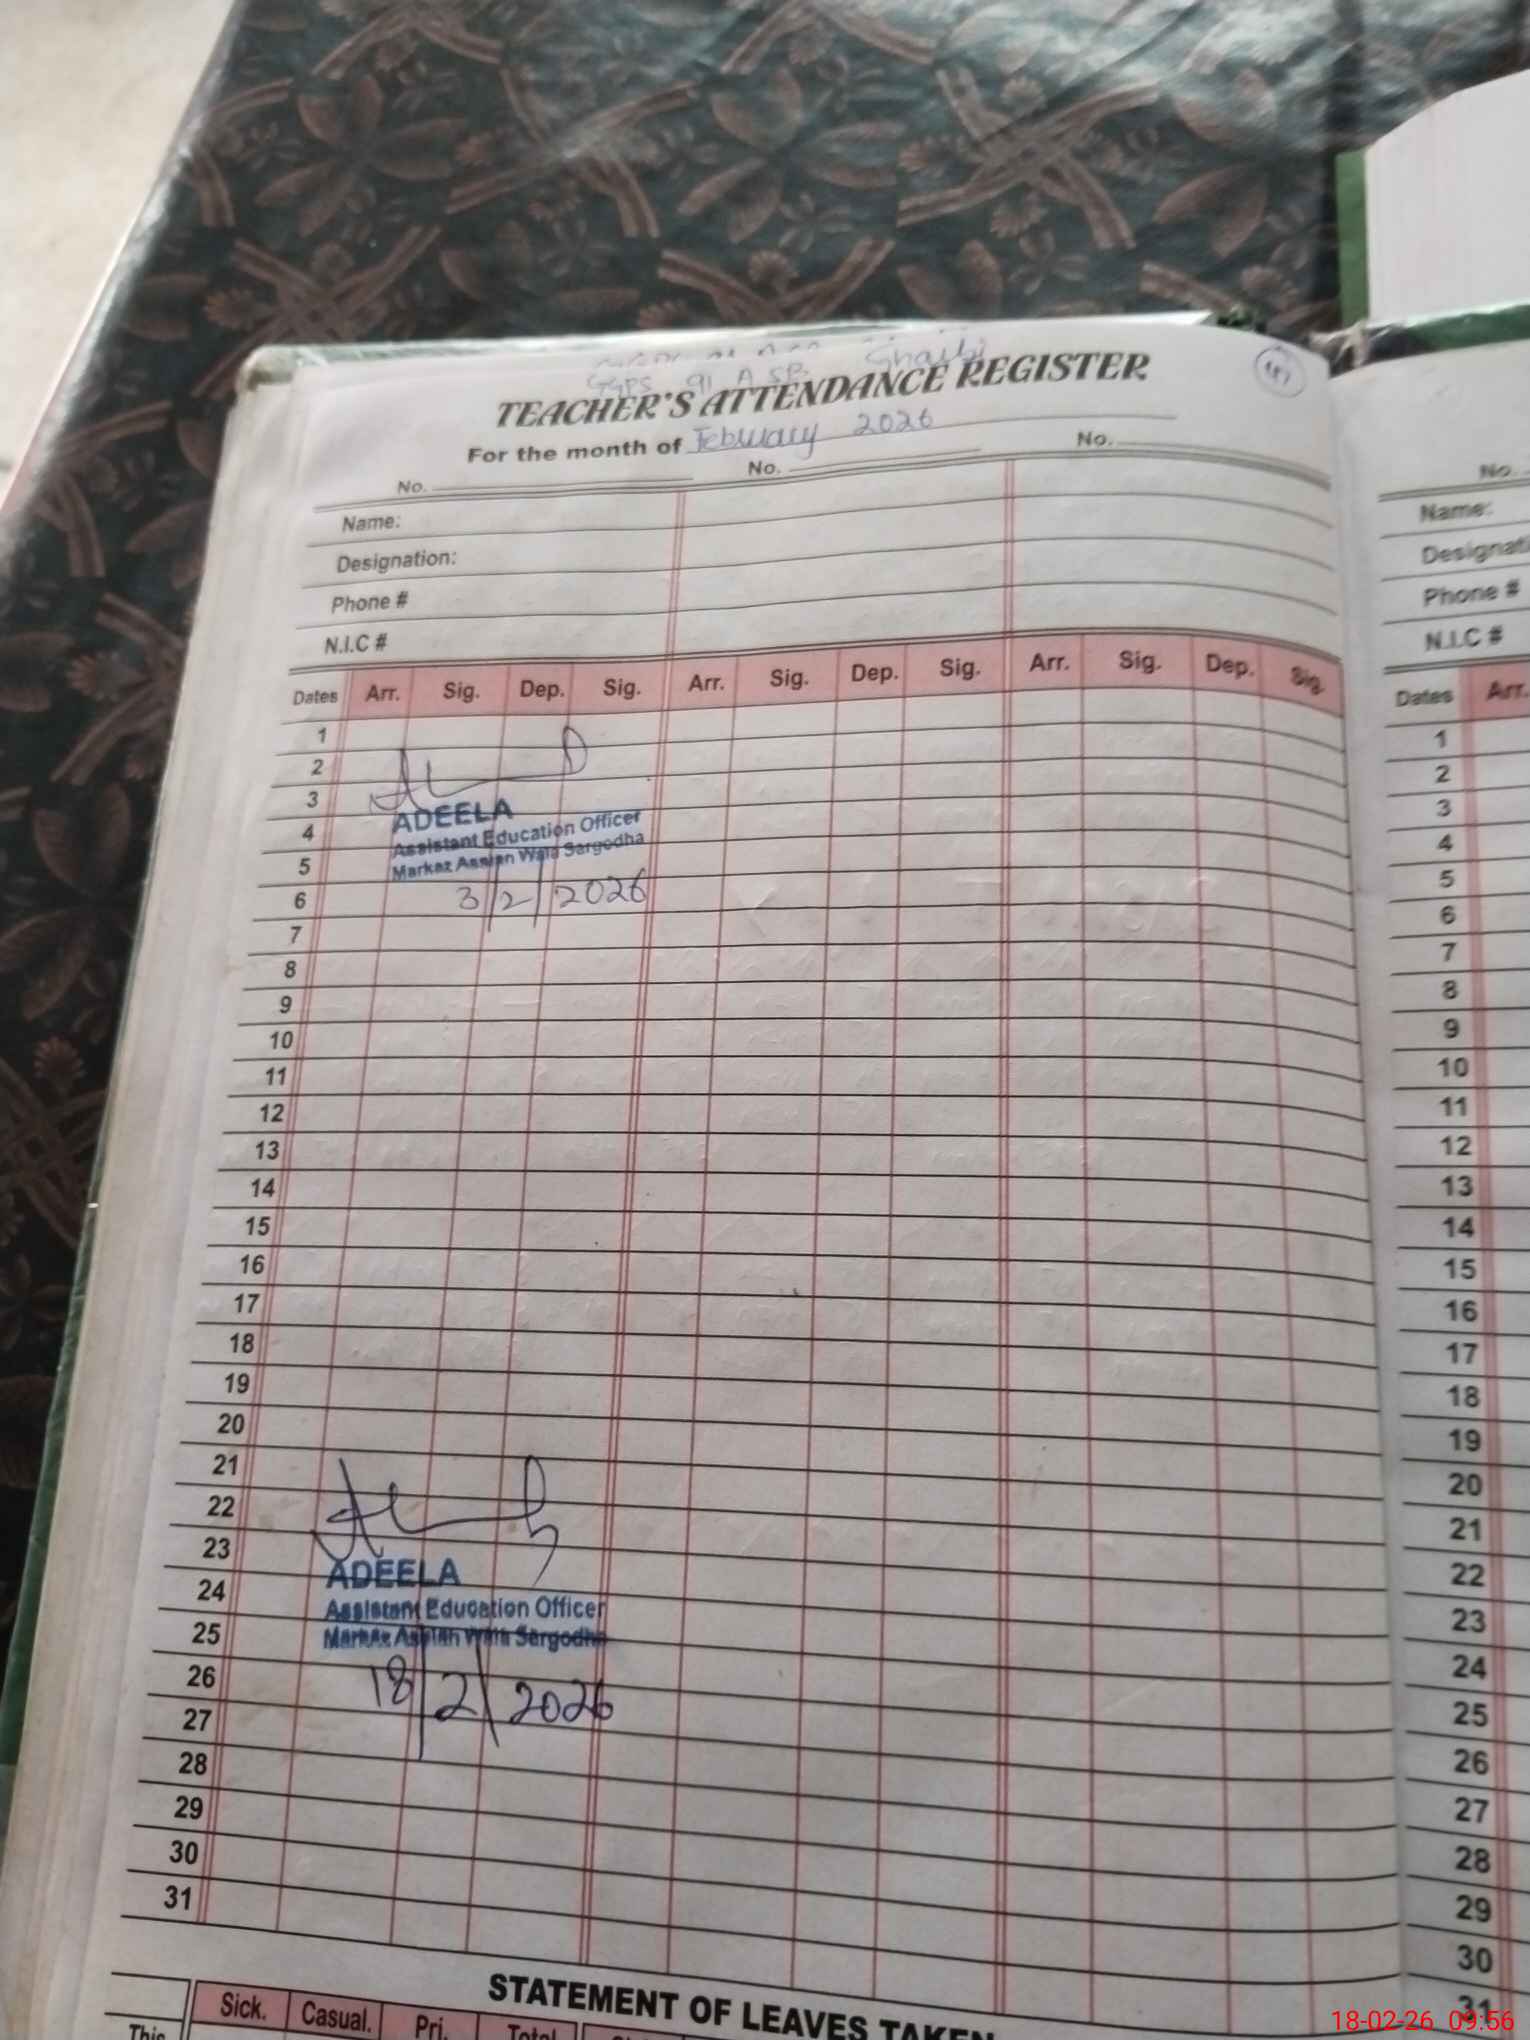 Gharbi
GGPS 91 A SB
TEACHER'S ATTENDANCE REGISTER
For the month of February 2026
No. No. No.
Name:
Designation:
Phone #
N.I.C #
Dates Arr. Sig. Dep. Sig. Arr. Sig. Dep. Sig. Arr. Sig. Dep. Sig.
1
2
3
ADEELA
4
Assistant Education Officer
5
Markaz Assian Wala Sargodha
6
3/2/2026
7
8
9
10
11
12
13
14
15
16
17
18
19
20
21
22
23
ADEELA
24
Assistant Education Officer
25
Markaz Assian Wala Sargodha
26
18/2/2026
27
28
29
30
31
STATEMENT OF LEAVES TAKEN
Sick. Casual. Pri. Total
This
No.
Name:
Designati
Phone #
N.I.C #
Dates Arr.
1
2
3
4
5
6
7
8
9
10
11
12
13
14
15
16
17
18
19
20
21
22
23
24
25
26
27
28
29
30
31
18-02-26 09:56